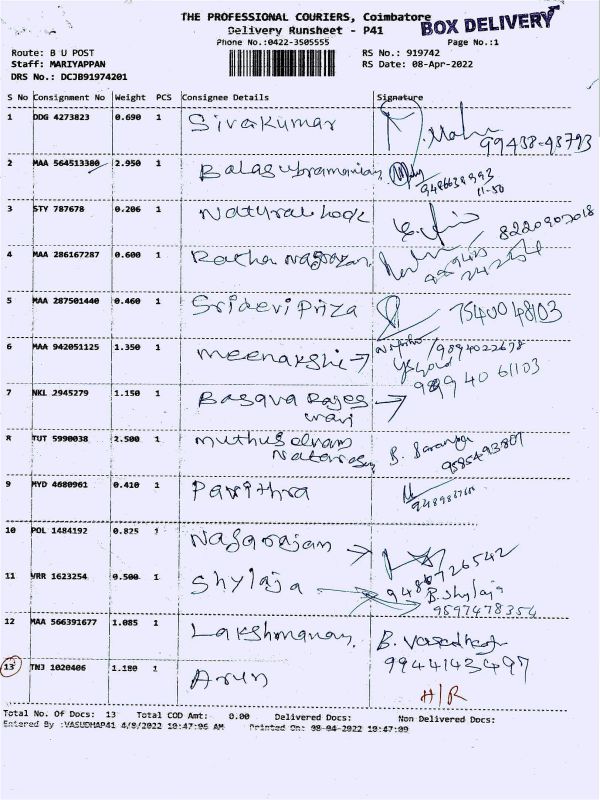 THE PROFESSIONAL COURIERS, Coimbatore
BOX DELIVERY
Delivery Runsheet - P41
Phone No.:0422-3505555
Page No.:1
Route: B U POST
RS No.: 919742
Staff: MARIYAPPAN
RS Date: 08-Apr-2022
DRS No.: DCJB91974201
S No Consignment No Weight PCS Consignee Details Signature
1 DDG 4273823 0.690 1 Sivakumar
99438-43793
2 MAA 564513380 2.950 1 Balasubramanian
9486638993
11-50
3 STY 787678 0.206 1 Natural look
8220907018
4 MAA 286167287 0.600 1 Ratha Nagrajan
5 MAA 287501440 0.460 1 Sridevi Priza 7540048103
6 MAA 942051125 1.350 1 meenakshi
9894022678
9994061103
7 NKL 2945279 1.150 1 Basava Rajes
wari
8 TUT 5990038 2.500 1 Muthuselvam
Natarasan
9585493807
9 MYD 4680961 0.410 1 Pavithra
10 POL 1484192 0.825 1 Nagarajan
9486726542
11 VRR 1623254 0.500 1 Shylaja B. Shylaja
9597478354
12 MAA 566391677 1.085 1 Lakshmanan B.
9944143497
13 TNJ 1020406 1.180 1 Arun
H/R
Total No. Of Docs: 13 Total COD Amt: 0.00 Delivered Docs: Non Delivered Docs:
Entered By :VASUDHAP41 4/8/2022 10:47:06 AM Printed On: 08-04-2022 10:47:09